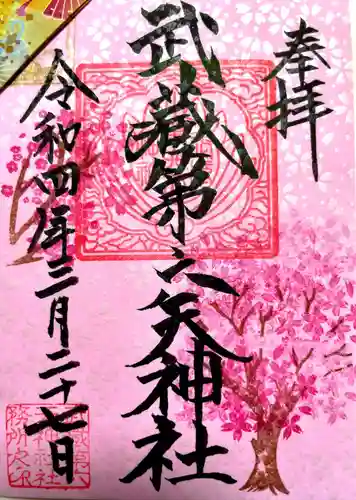 奉拝
武蔵第六天神社
令和四年三月二十七日